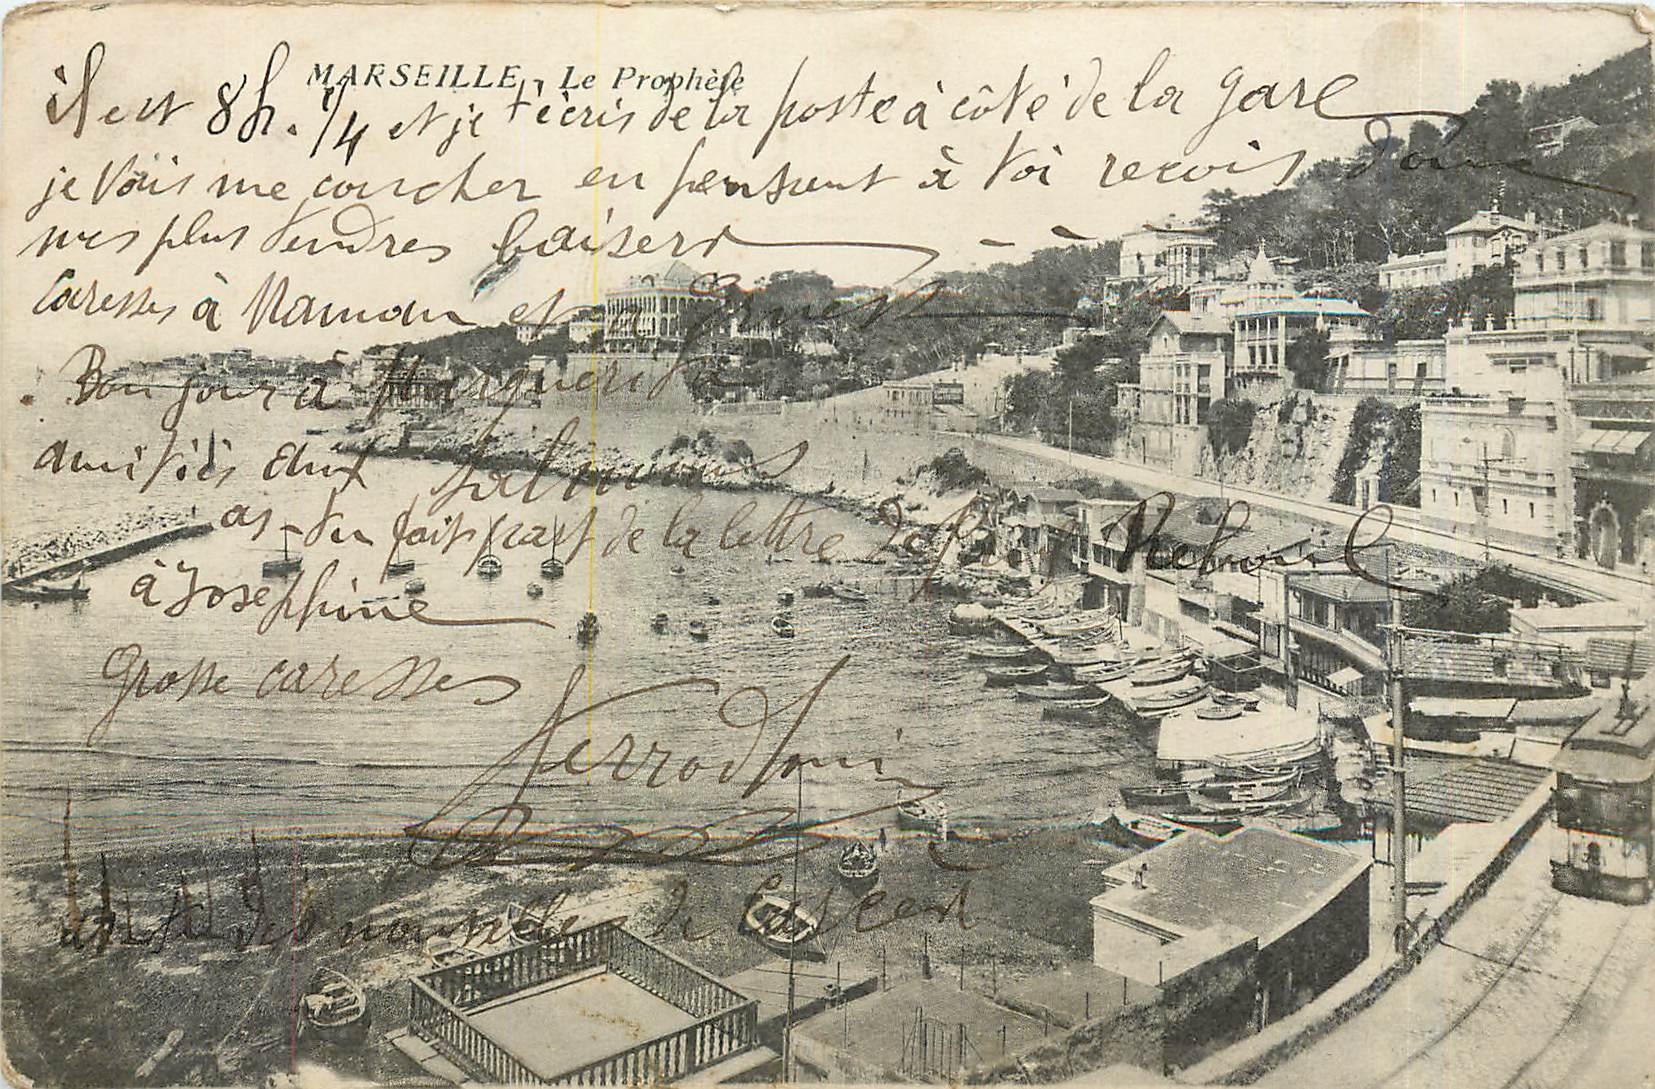 MARSEILLE - Le Prophète
il est 8h. 1/4 et je t'écris de la poste à côté de la gare
je vais me coucher en pensant à toi recois donc
mes plus tendres baisers
Caresses à Maman et à Ernest
Bonjour à Marguerite
amitiés aux
as-tu fait part de la lettre de Reboul
à Joséphine
Grosse caresses
as tu des nouvelles de